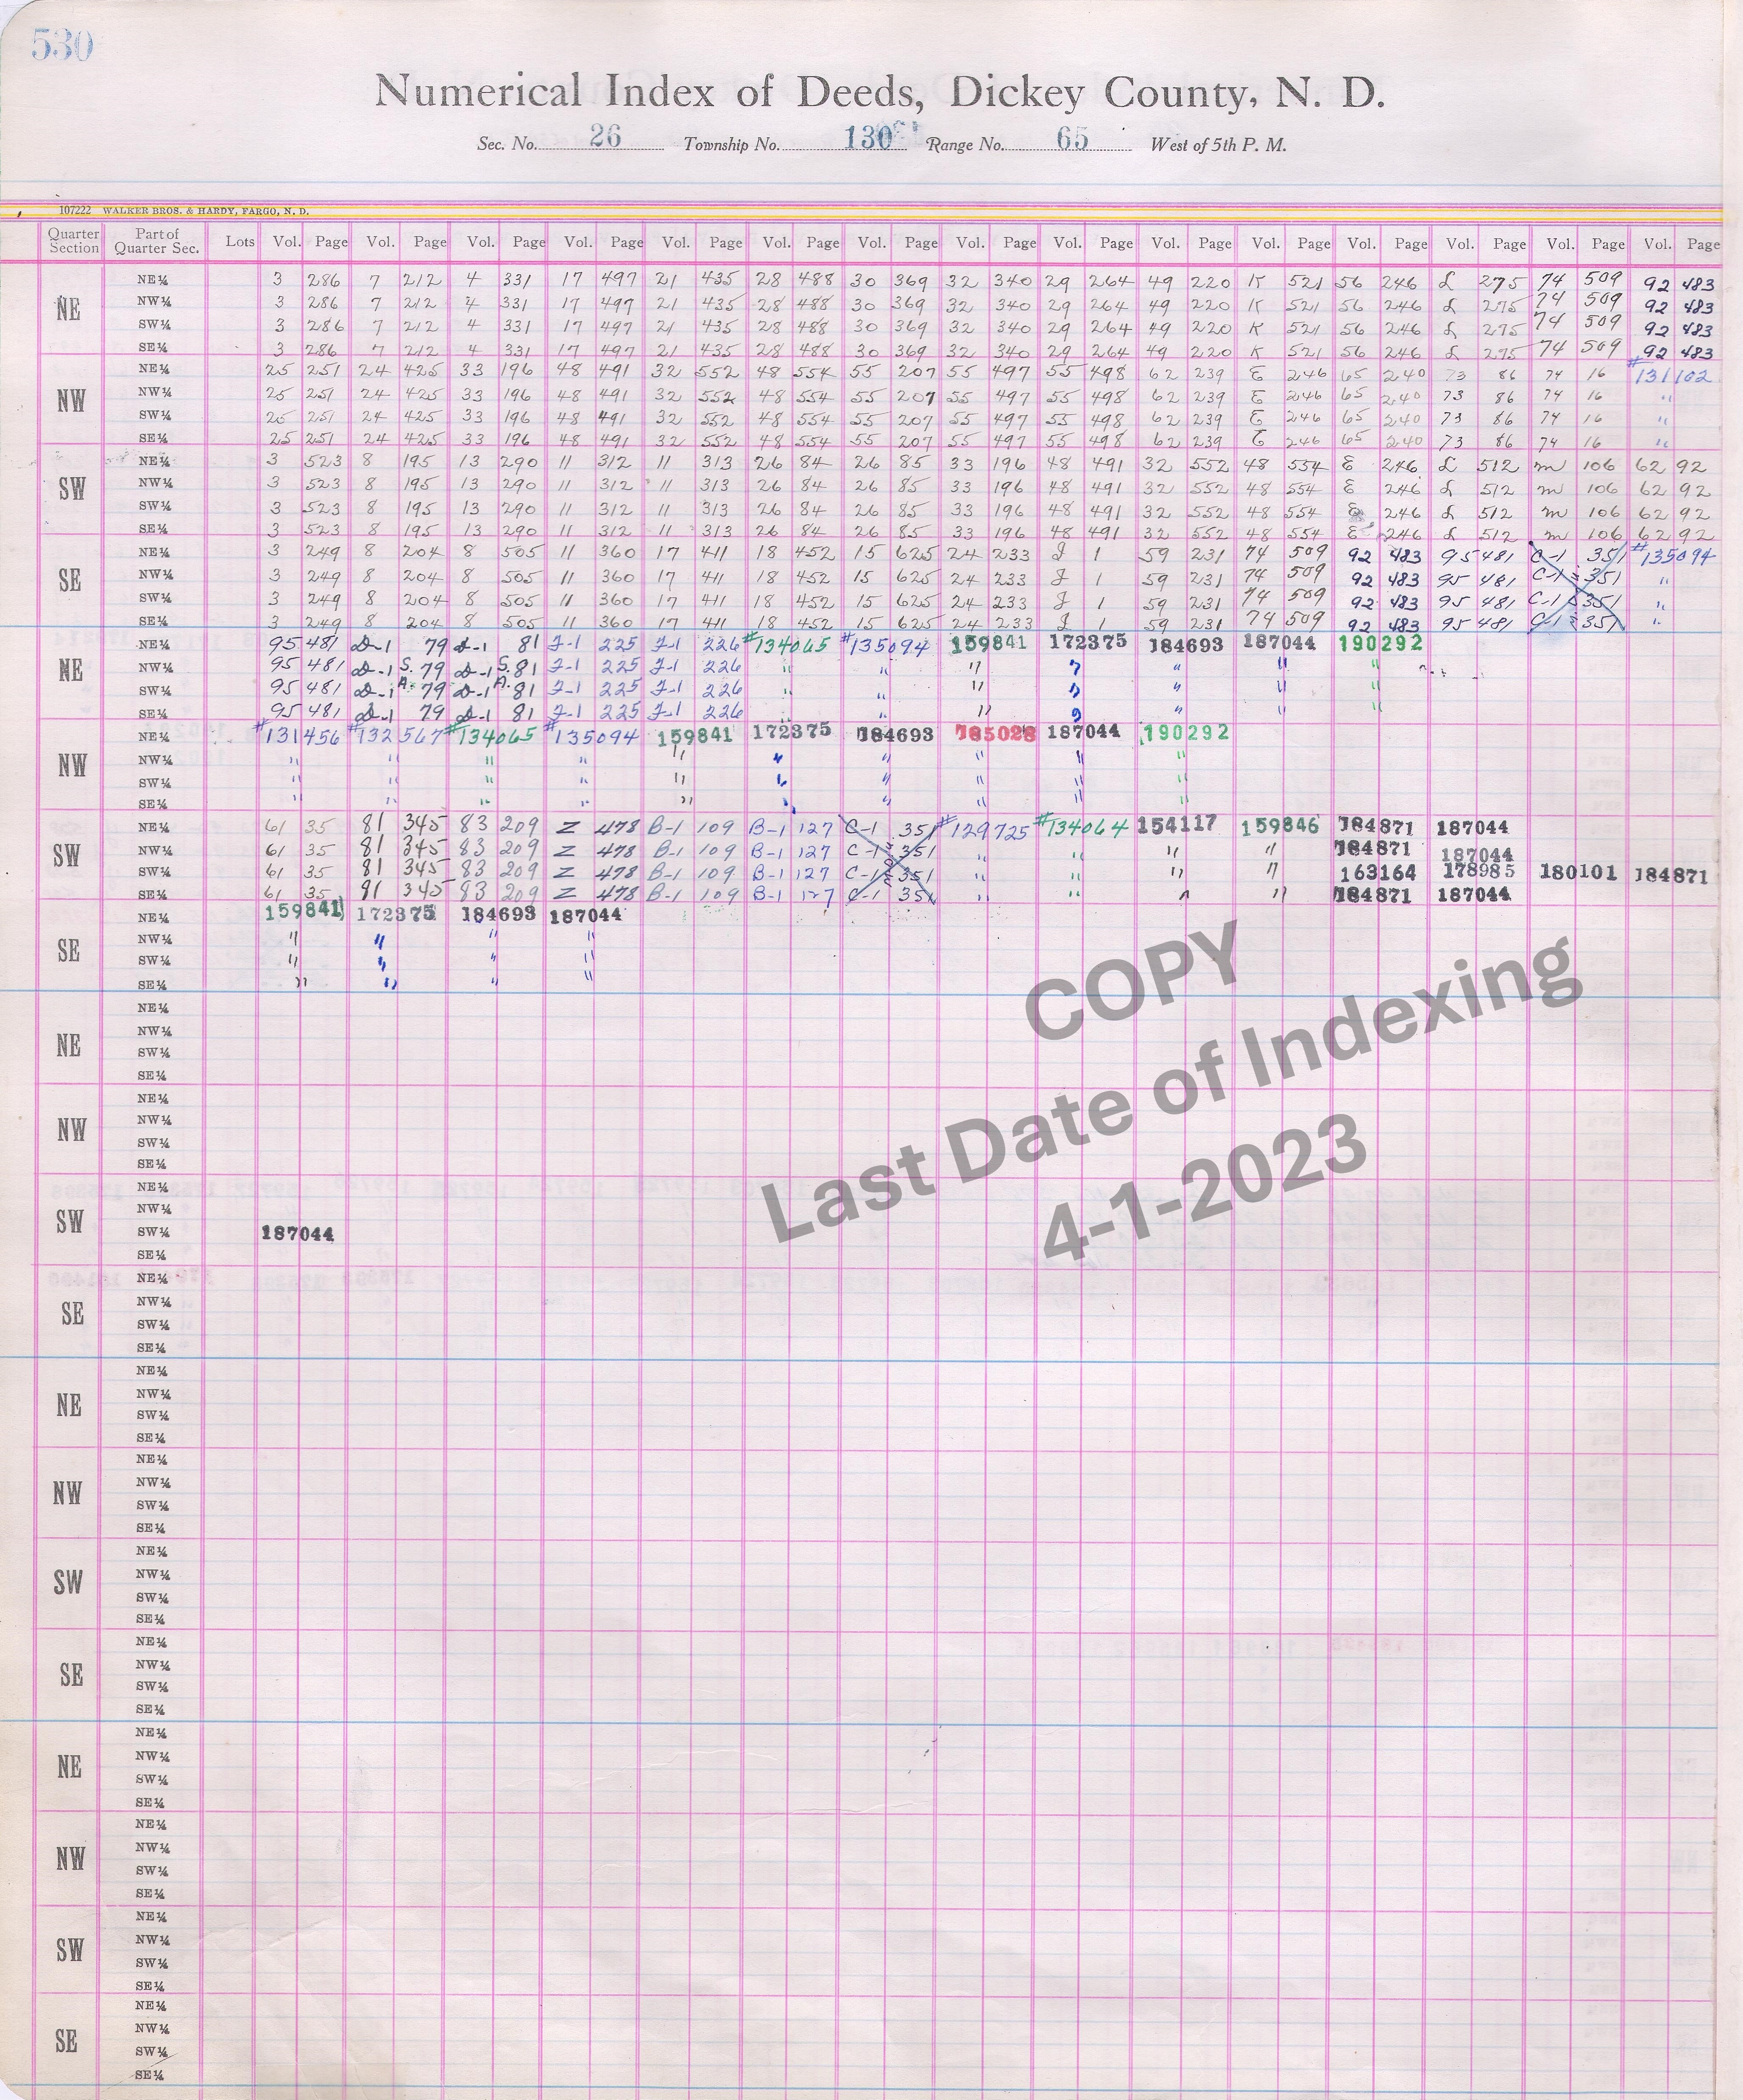 530
Numerical Index of Deeds, Dickey County, N. D.
Sec. No. 26 Township No. 130 Range No. 65 West of 5th P. M.
107222 WALKER BROS. & HARDY, FARGO, N. D.
Quarter Section Part of Quarter Sec. Lots Vol. Page Vol. Page Vol. Page Vol. Page Vol. Page Vol. Page Vol. Page Vol. Page Vol. Page Vol. Page Vol. Page Vol. Page Vol. Page Vol. Page Vol. Page
NE
NE¼ 3 286 7 212 4 331 17 497 21 435 28 488 30 369 32 340 29 264 49 220 K 521 56 246 L 275 74 509 92 483
NW¼ 3 286 7 212 4 331 17 497 21 435 28 488 30 369 32 340 29 264 49 220 K 521 56 246 L 275 74 509 92 483
SW¼ 3 286 7 212 4 331 17 497 21 435 28 488 30 369 32 340 29 264 49 220 K 521 56 246 L 275 74 509 92 483
SE¼ 3 286 7 212 4 331 17 497 21 435 28 488 30 369 32 340 29 264 49 220 K 521 56 246 L 275 74 509 92 483
NW
NE¼ 25 251 24 425 33 196 48 491 32 552 48 554 55 207 55 497 55 498 62 239 E 246 65 240 73 86 74 16 #131102
NW¼ 25 251 24 425 33 196 48 491 32 552 48 554 55 207 55 497 55 498 62 239 E 246 65 240 73 86 74 16 "
SW¼ 25 251 24 425 33 196 48 491 32 552 48 554 55 207 55 497 55 498 62 239 E 246 65 240 73 86 74 16 "
SE¼ 25 251 24 425 33 196 48 491 32 552 48 554 55 207 55 497 55 498 62 239 E 246 65 240 73 86 74 16 "
SW
NE¼ 3 523 8 195 13 290 11 312 11 313 26 84 26 85 33 196 48 491 32 552 48 554 E 246 L 512 M 106 62 92
NW¼ 3 523 8 195 13 290 11 312 11 313 26 84 26 85 33 196 48 491 32 552 48 554 E 246 L 512 M 106 62 92
SW¼ 3 523 8 195 13 290 11 312 11 313 26 84 26 85 33 196 48 491 32 552 48 554 E 246 L 512 M 106 62 92
SE¼ 3 523 8 195 13 290 11 312 11 313 26 84 26 85 33 196 48 491 32 552 48 554 E 246 L 512 M 106 62 92
SE
NE¼ 3 249 8 204 8 505 11 360 17 411 18 452 15 625 24 233 J 1 59 231 74 509 92 483 95 481 C-1 351 #135094
NW¼ 3 249 8 204 8 505 11 360 17 411 18 452 15 625 24 233 J 1 59 231 74 509 92 483 95 481 C-1 351 "
SW¼ 3 249 8 204 8 505 11 360 17 411 18 452 15 625 24 233 J 1 59 231 74 509 92 483 95 481 C-1 351 "
SE¼ 3 249 8 204 8 505 11 360 17 411 18 452 15 625 24 233 J 1 59 231 74 509 92 483 95 481 C-1 351 "
NE
NE¼ 95 481 D-1 79 D-1 81 F-1 225 F-1 226 #134065 #135094 159841 172375 184693 187044 190292
NW¼ 95 481 D-1 S. 79 D-1 S. 81 F-1 225 F-1 226 " " " " " " "
SW¼ 95 481 D-1 A. 79 D-1 A. 81 F-1 225 F-1 226 " " " " " " "
SE¼ 95 481 D-1 79 D-1 81 F-1 225 F-1 226 " " " " " " "
NW
NE¼ #131456 #132567 #134065 #135094 159841 172375 184693 185028 187044 190292
NW¼ " " " " " " " " " "
SW¼ " " " " " " " " " "
SE¼ " " " " " " " " " "
SW
NE¼ 61 35 81 345 83 209 Z 478 B-1 109 B-1 127 C-1 351 #129725 #134064 154117 159846 184871 187044
NW¼ 61 35 81 345 83 209 Z 478 B-1 109 B-1 127 C-1 351 " " " " 184871 187044
SW¼ 61 35 81 345 83 209 Z 478 B-1 109 B-1 127 C-1 351 " " " " 163164 178985 180101 184871
SE¼ 61 35 81 345 83 209 Z 478 B-1 109 B-1 127 C-1 351 " " " " 184871 187044
SE
NE¼ 159841 172375 184693 187044
NW¼ " " " "
SW¼ " " " "
SE¼ " " " "
NE
NE¼
NW¼
SW¼
SE¼
NW
NE¼
NW¼
SW¼
SE¼
SW
NE¼
NW¼
SW¼ 187044
SE¼
SE
NE¼
NW¼
SW¼
SE¼
NE
NE¼
NW¼
SW¼
SE¼
NW
NE¼
NW¼
SW¼
SE¼
SW
NE¼
NW¼
SW¼
SE¼
SE
NE¼
NW¼
SW¼
SE¼
NE
NE¼
NW¼
SW¼
SE¼
NW
NE¼
NW¼
SW¼
SE¼
SW
NE¼
NW¼
SW¼
SE¼
SE
NE¼
NW¼
SW¼
SE¼
COPY
Last Date of Indexing
4-1-2023